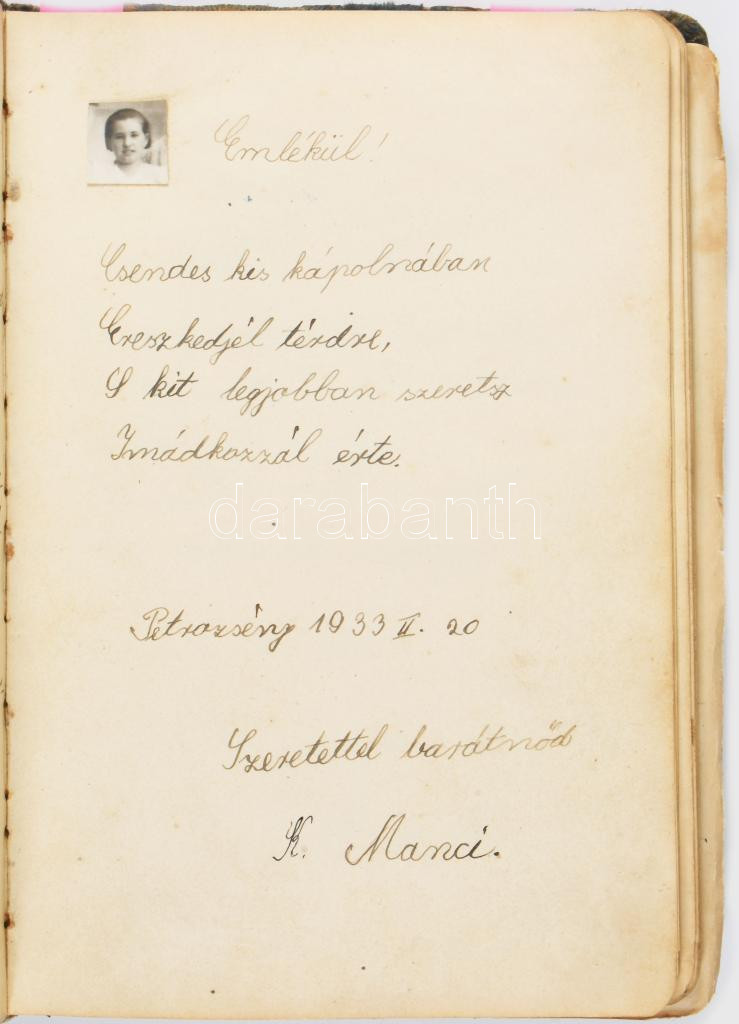 Emlékül!
Csendes kis kápolnában
Ereszkedjél térdre,
S kit legjobban szeretsz
Imádkozzál érte.
darabanth
Petrozsény 1933 II. 20
Szeretettel barátnőd
K. Manci.